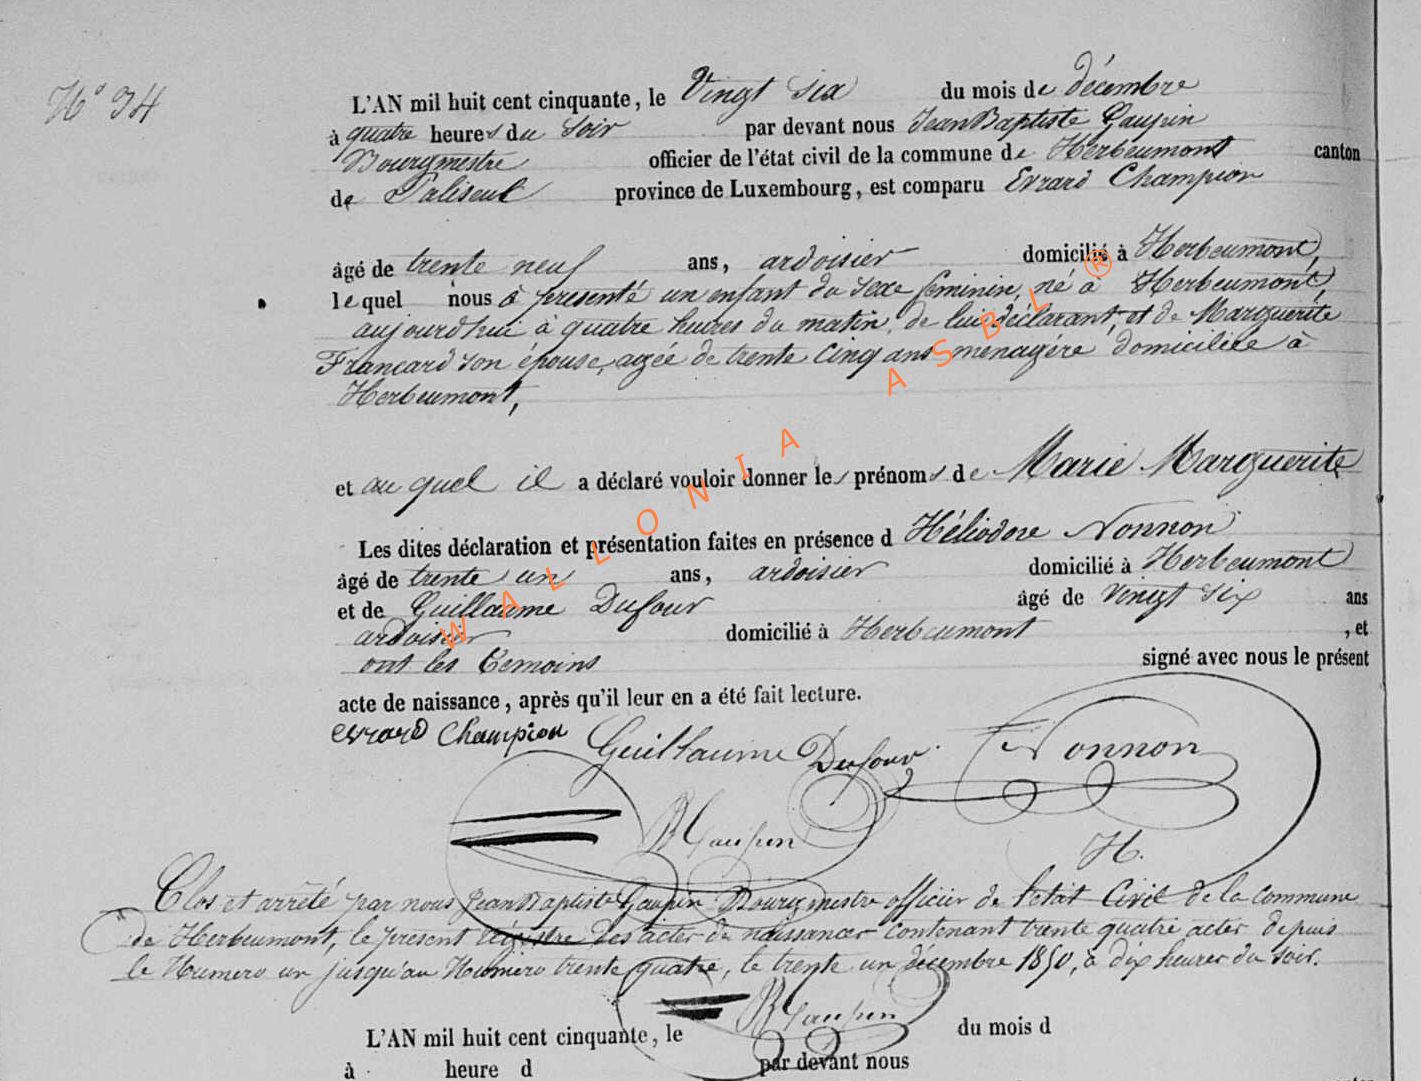 N° 34
L'AN mil huit cent cinquante, le Vingt Six du mois de décembre
à quatre heures du Soir par devant nous Jean Baptiste Gaupin
Bourgmestre officier de l'état civil de la commune de Herbeumont canton
de Paliseul province de Luxembourg, est comparu Evrard Champion
âgé de trente neuf ans, ardoisier domicilié à Herbeumont,
lequel nous à presenté un enfant du sexe feminin, né à Herbeumont,
aujourdhui à quatre heures du matin, de lui déclarant, et de Marguerite
Francard son épouse, agée de trente cinq ans menagère domiciliée à
Herbeumont,
et au quel il a déclaré vouloir donner les prénoms de Marie Marguerite
Les dites déclaration et présentation faites en présence d Héliodore Nonnon
âgé de trente un ans, ardoisier domicilié à Herbeumont
et de Guillaume Dufour âgé de vingt six ans
ardoisier domicilié à Herbeumont , et
ont les temoins signé avec nous le présent
acte de naissance, après qu'il leur en a été fait lecture.
evrard Champion Guillaume Dufour Nonnon
Gaupin H.
Clos et arrêté par nous Jean Baptiste Gaupin Bourgmestre officier de l'etat Civil de la commune
de Herbeumont, le present registre des actes de naissances contenant trente quatre actes depuis
le Numero un jusqu'au Numero trente quatre, le trente un décembre 1850, à dix heures du soir.
Gaupin
L'AN mil huit cent cinquante, le du mois d
à heure d par devant nous
WALLONIA ASBL ®